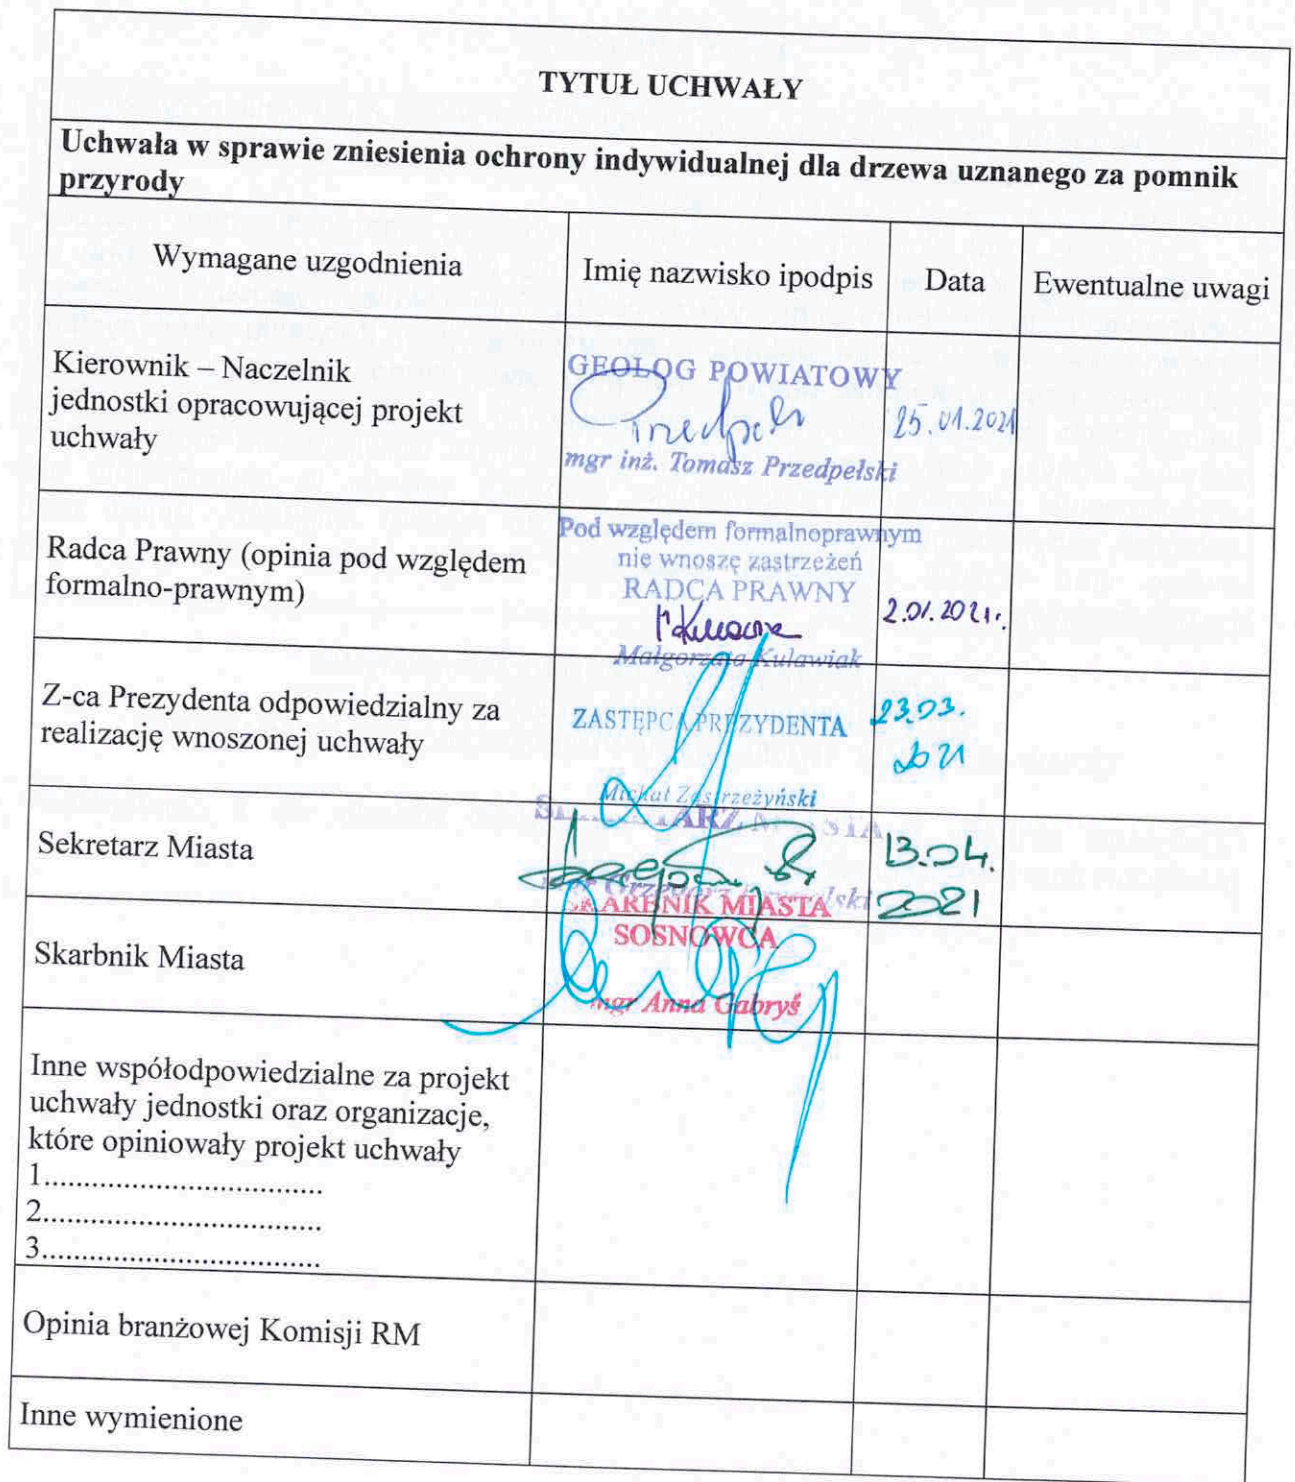 TYTUŁ UCHWAŁY
Uchwała w sprawie zniesienia ochrony indywidualnej dla drzewa uznanego za pomnik
przyrody
Wymagane uzgodnienia
Imię nazwisko ipodpis
Data
Ewentualne uwagi
Kierownik – Naczelnik
jednostki opracowującej projekt
uchwały
GEOLOG POWIATOWY
mgr inż. Tomasz Przedpełski
25.01.2021
Radca Prawny (opinia pod względem
formalno-prawnym)
Pod względem formalnoprawnym
nie wnoszę zastrzeżeń
RADCA PRAWNY
Małgorzata Kulawiak
2.01.2021r.
Z-ca Prezydenta odpowiedzialny za
realizację wnoszonej uchwały
ZASTĘPCA PREZYDENTA
Michał Zastrzeżyński
23.03.
2021
Sekretarz Miasta
SEKRETARZ MIASTA
mgr Grzegorz
13.04.
2021
Skarbnik Miasta
SKARBNIK MIASTA
SOSNOWCA
mgr Anna Gabryś
Inne współodpowiedzialne za projekt
uchwały jednostki oraz organizacje,
które opiniowały projekt uchwały
1..................................
2..................................
3..................................
Opinia branżowej Komisji RM
Inne wymienione